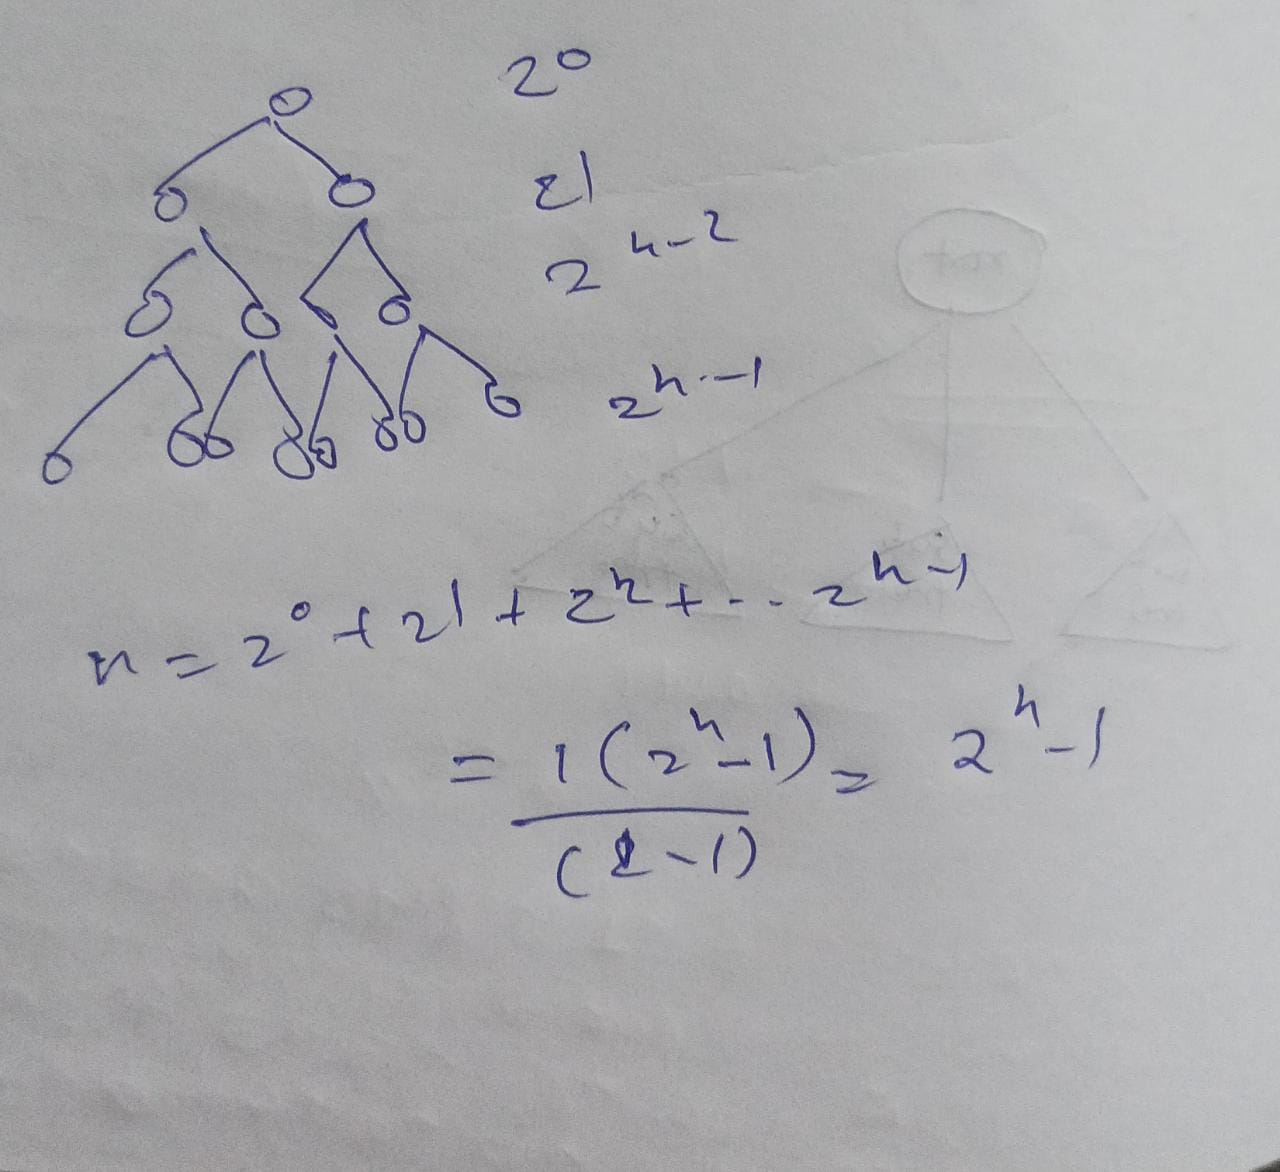 2⁰
2¹
2ʰ⁻²
2ʰ⁻¹
n = 2⁰ + 2¹ + 2² + ... 2ʰ⁻¹
= 1(2ʰ-1) = 2ʰ-1
(2-1)